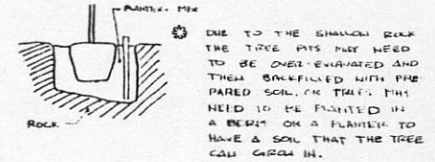 PLANTER MIX
DUE TO THE SHALLOW ROCK
THE TREE PITS MAY NEED
TO BE OVER-EXCAVATED AND
THEN BACKFILLED WITH PRE-
PARED SOIL, OR TREES MAY
NEED TO BE PLANTED IN
A BERM OR A PLANTER TO
HAVE A SOIL THAT THE TREE
CAN GROW IN.
ROCK